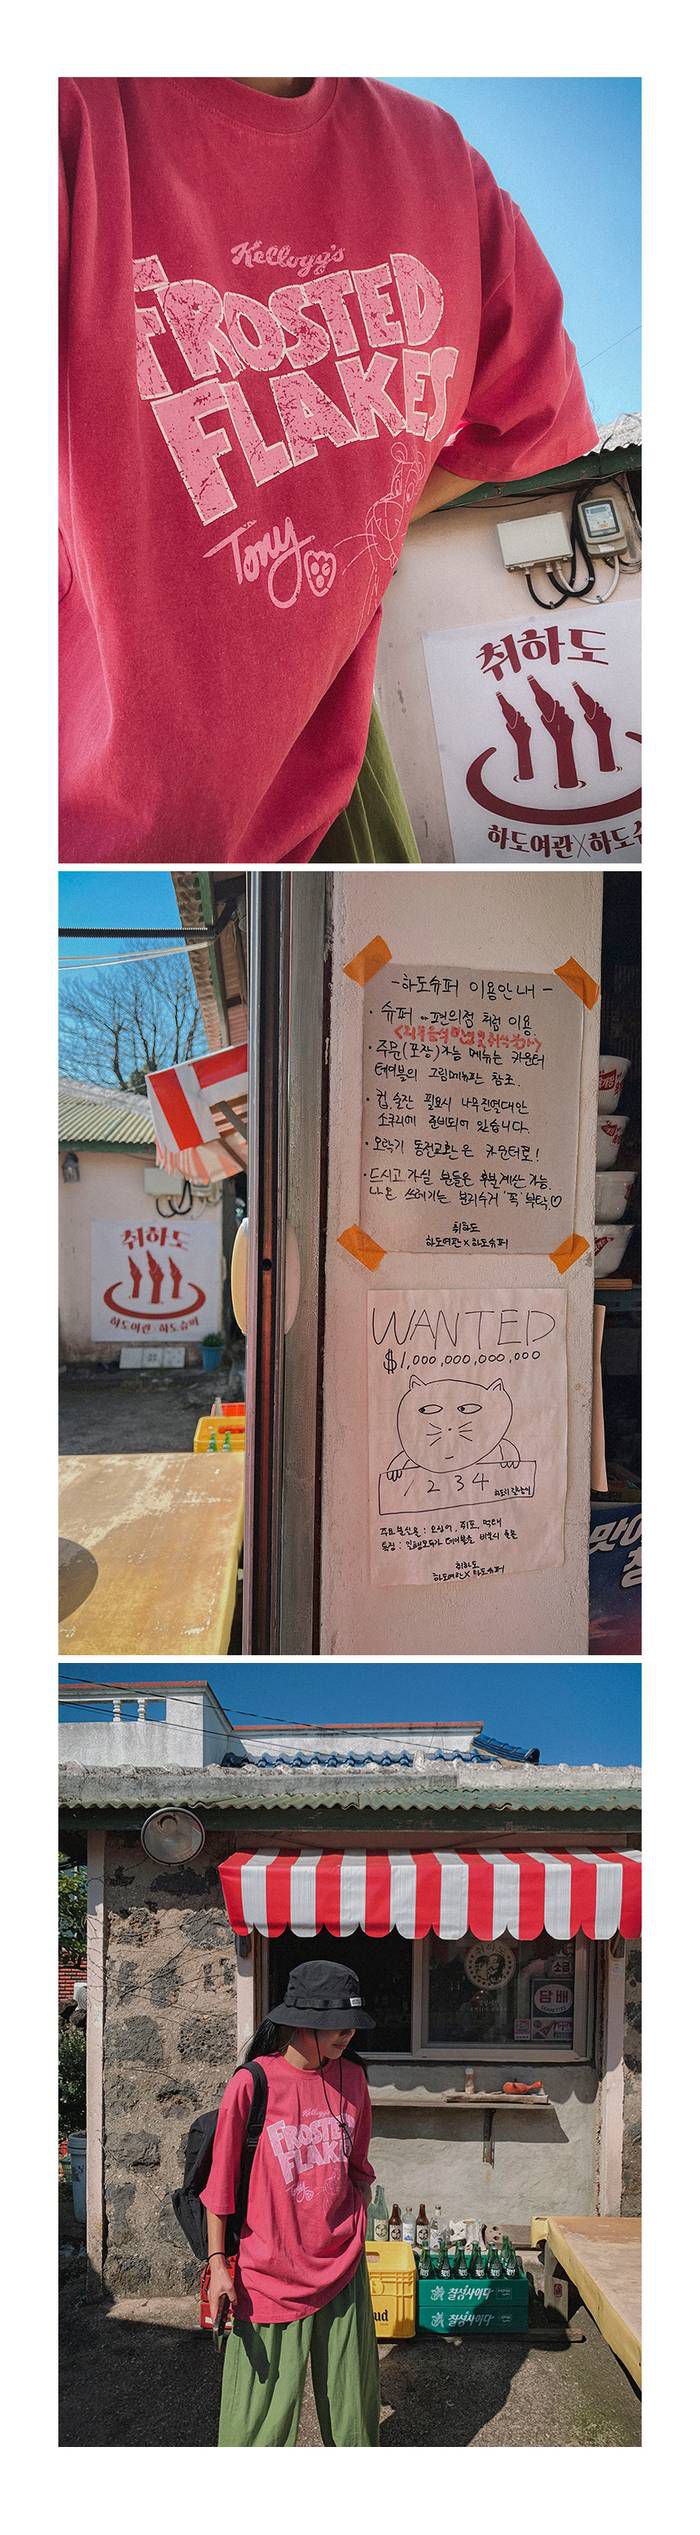 Kellogg's
FROSTED
FLAKES
Tony
취하도
하도여관 X 하도슈
-하도슈퍼 이용안내-
· 슈퍼 → 편의점 처럼 이용.
· 주문(포장)가능 메뉴는 카운터
테이블의 그림메뉴판 참조.
· 컵, 술잔 필요시 나무진열대안
소쿠리에 준비되어 있습니다.
· 오락기 동전교환은 카운터로!
· 드시고 가실 분들은 후불계산 가능.
나온 쓰레기는 분리수거 '꼭' 부탁♡
취하도
하도여관 x 하도슈퍼
취하도
하도여관 x 하도슈퍼
WANTED
$1,000,000,000,000
1 2 3 4
특징 : 일행모두가 테이블을 비울시 출몰
취하도
하도여관 x 하도슈퍼
맛이
담배
소금
Kellogg's
FROSTED
FLAKES
Tony
칠성사이다
칠성사이다
ud